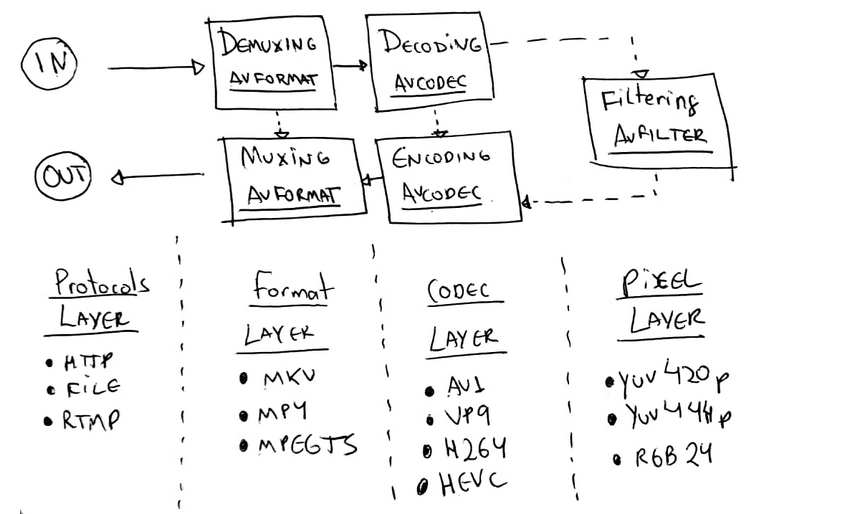 IN
DEMUXING
AVFORMAT
DECODING
AVCODEC
Filtering
AVFILTER
OUT
MUXING
AVFORMAT
ENCODING
AVCODEC.
Protocols
LAYER
• HTTP
• FILE
• RTMP
Format
LAYER
• MKV
• MP4
• MPEGTS
CODEC
LAYER
• AV1
• VP9
• H264
• HEVC
PiXEL
LAYER
• YUV420p
• YUV444p
• RGB24